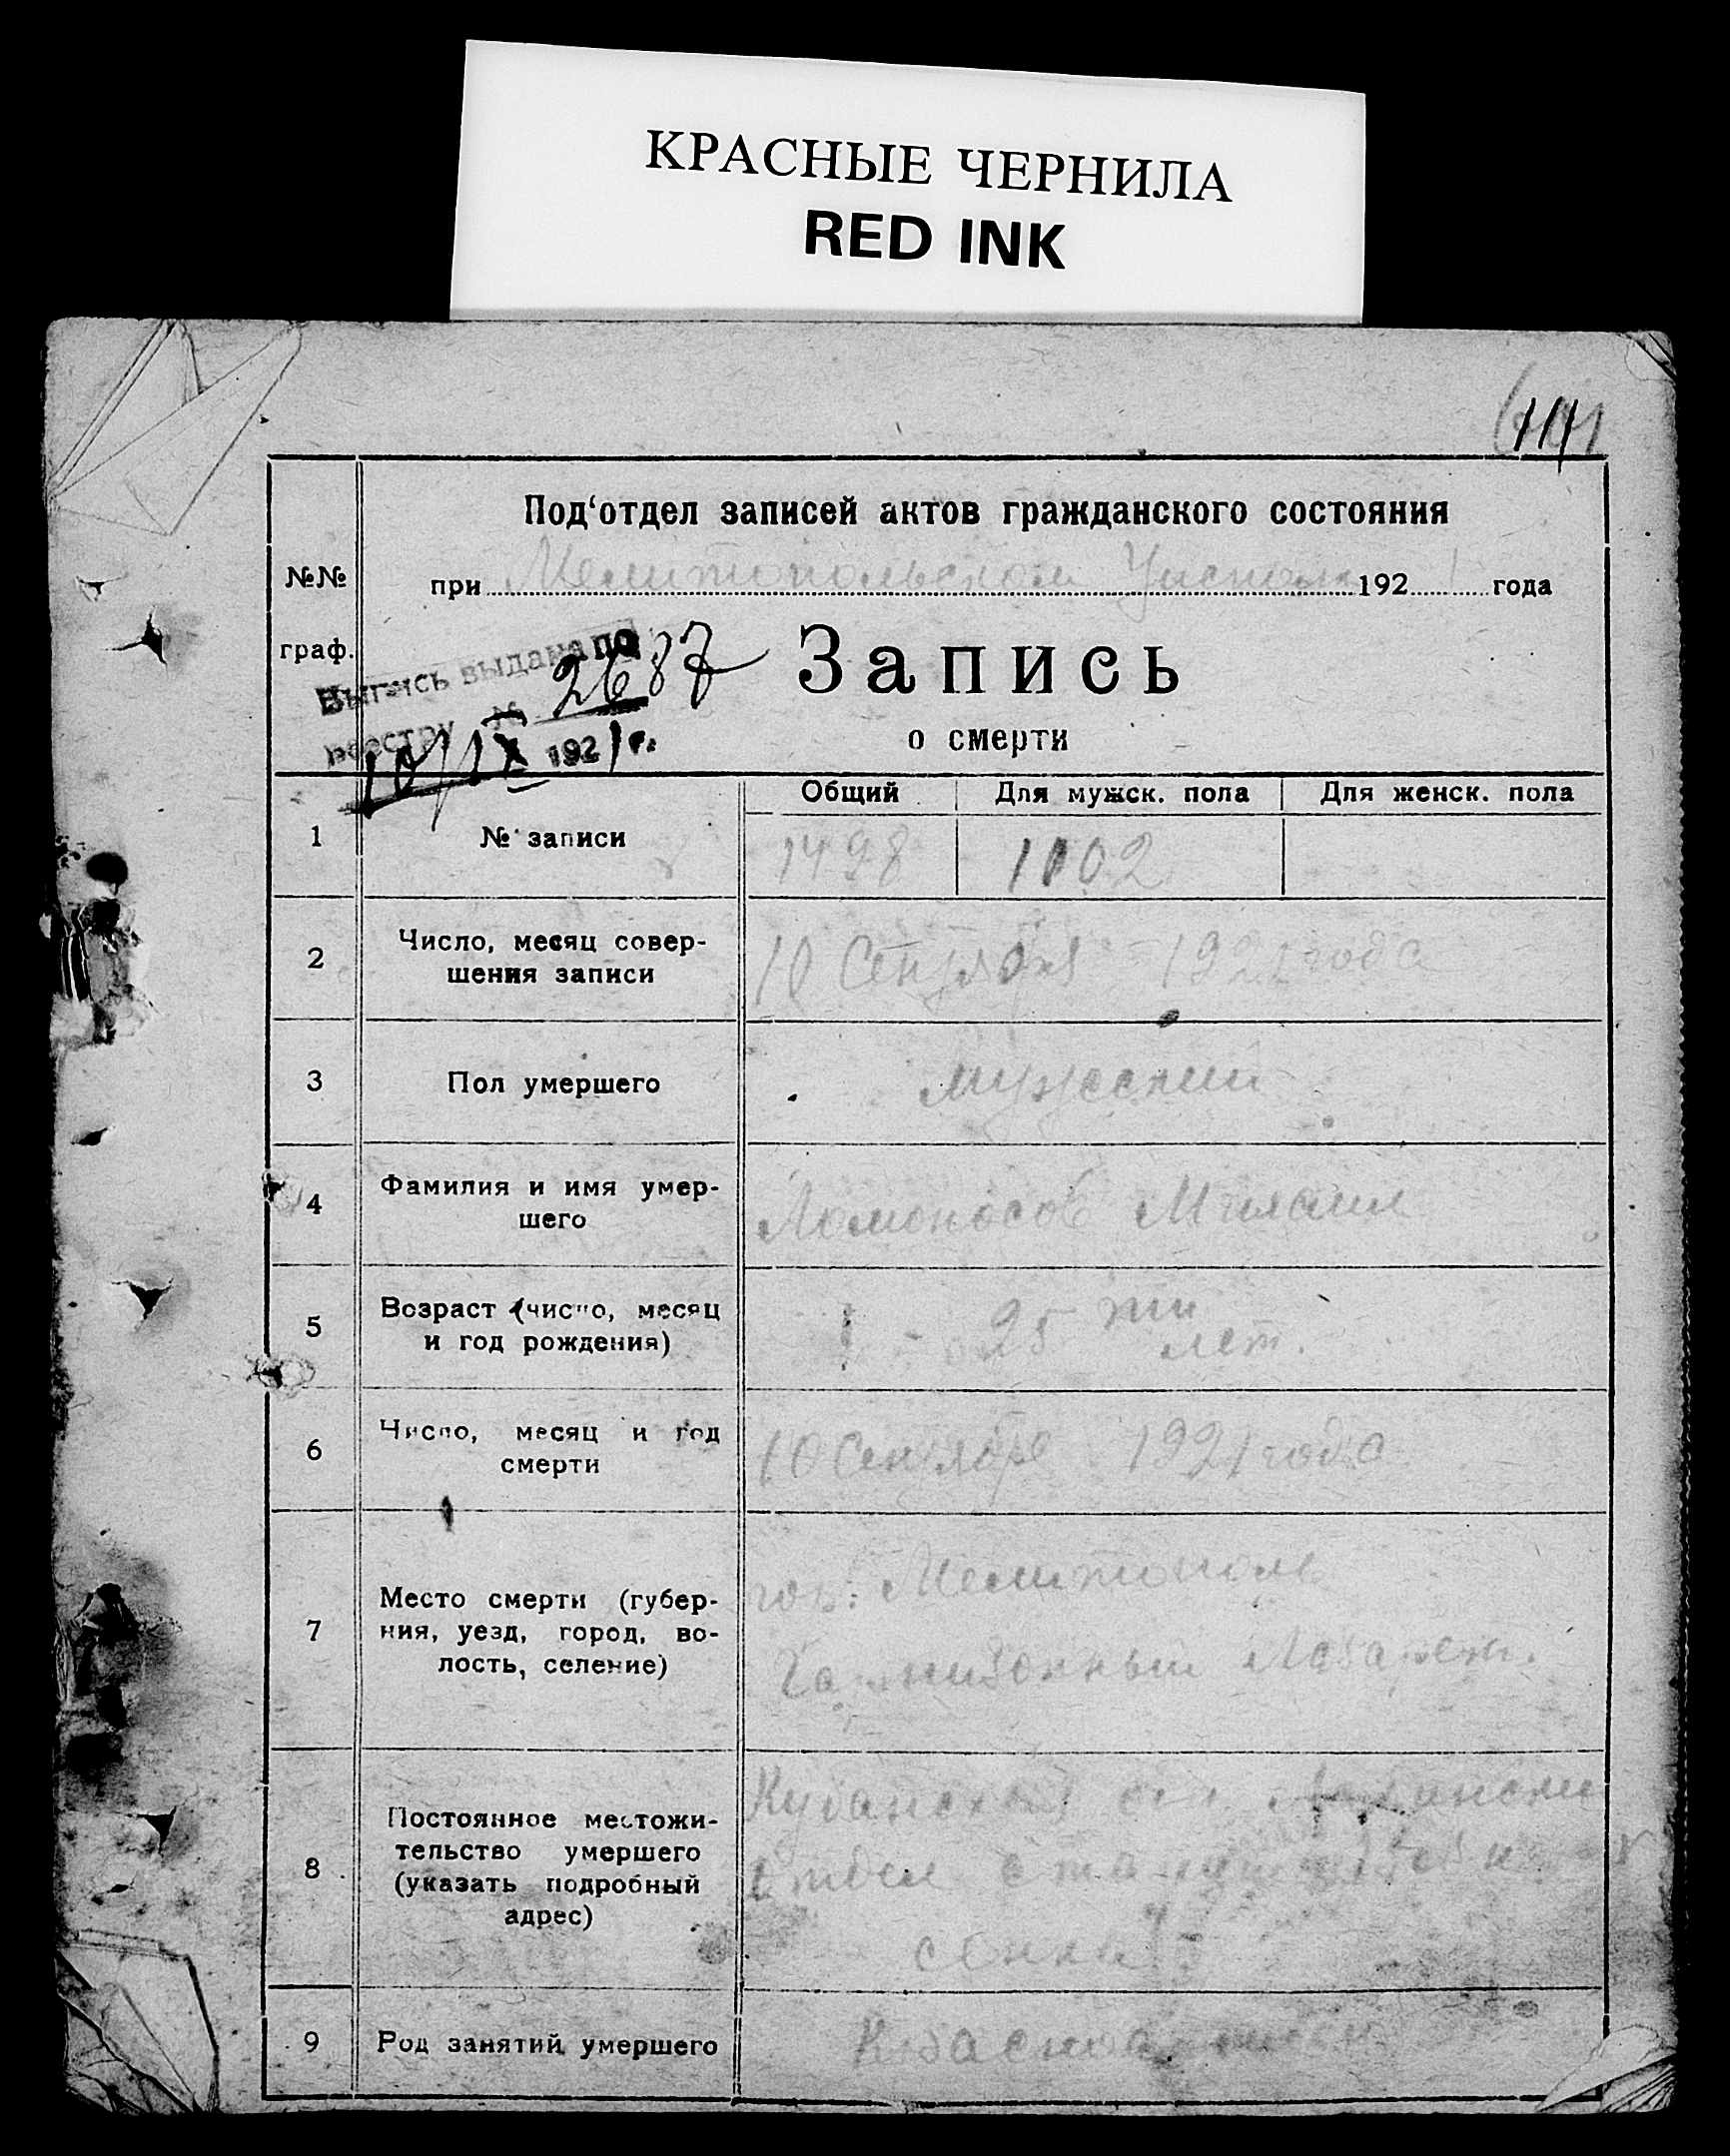 КРАСНЫЕ ЧЕРНИЛА
RED INK
Под‘отдел записей актов гражданского состояния
№№
граф.
при Мелитопольском 192 1 года
Выпись выдана по
реестру № 2687
10/IX 1921 г.
Запись
о смерти
Общий Для мужск. пола Для женск. пола
1 № записи 1498 1102
2 Число, месяц совер-
шения записи
10 Сентября 1921 года
3 Пол умершего мужеский
4 Фамилия и имя умер-
шего
Ломоносов Михаил
5 Возраст (число, месяц
и год рождения)
25 ти
лет.
6 Число, месяц и год
смерти
10 Сентября 1921 года
7 Место смерти (губер-
ния, уезд, город, во-
лость, селение)
гор. Мелитополь
Гарнизонный Лазарет.
8 Постоянное местожи-
тельство умершего
(указать подробный
адрес)
Кубанской
отдел
9 Род занятий умершего